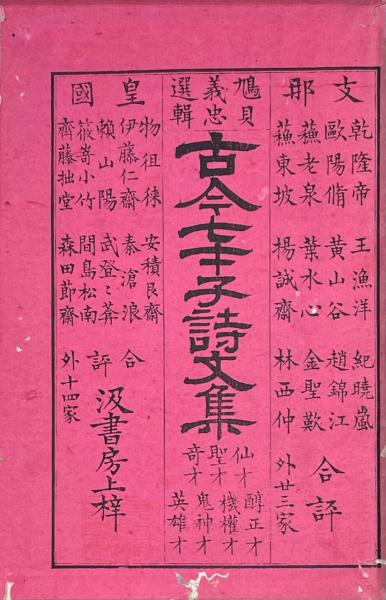 支那
乾隆帝 王漁洋 紀曉嵐
歐陽脩 黃山谷 趙錦江
蘓老泉 葉水心 金聖歎 合評
蘓東坡 揚誠齋 林西仲 外廿三家
鴻貝
義忠
選輯
古今七才子詩文集
仙才
聖才
奇才
醇正才
機權才
鬼神才
英雄才
皇國
物徂徠 安積艮齋
伊藤仁齋 秦滄浪 合評
賴山陽 武登々葊
筱嵜小竹 間島松南
齊藤拙堂 森田節齋 外十四家
汲書房上梓